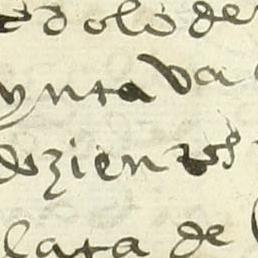 dolo de
ynta va
duzientos
lata de